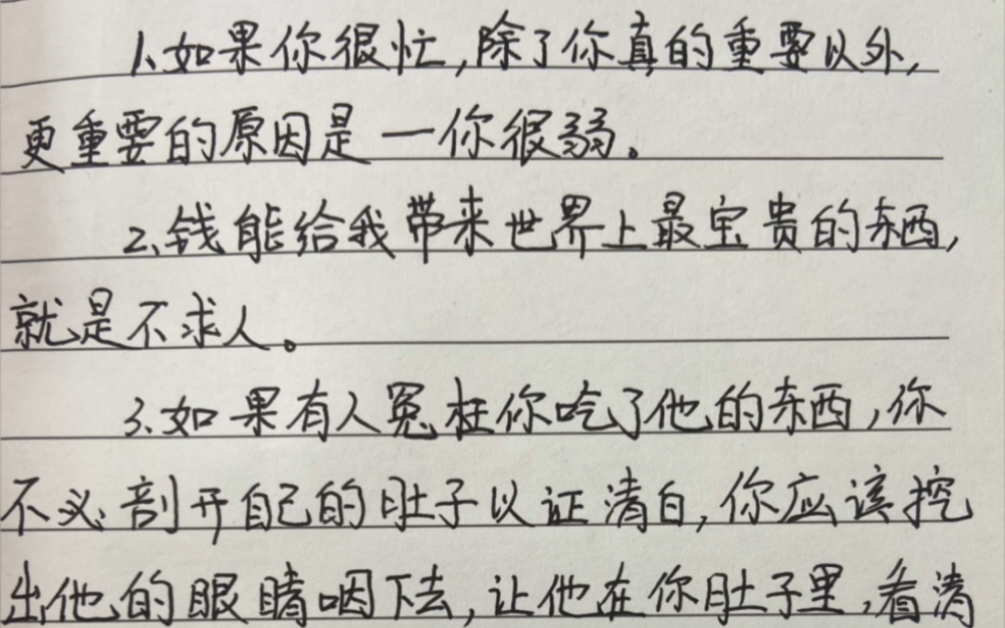 1、如果你很忙,除了你真的重要以外,
更重要的原因是一你很弱。
2、钱能给我带来世界上最宝贵的东西,
就是不求人。
3、如果有人冤枉你吃了他的东西,你
不必剖开自己的肚子以证清白,你应该挖
出他的眼睛咽下去,让他在你肚子里,看清